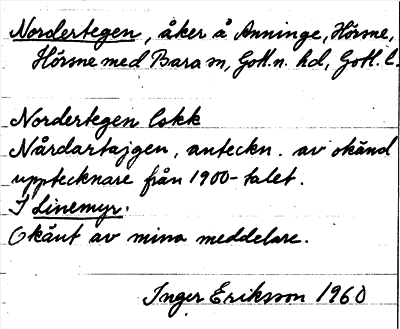 Nordertegen, åker å Anninge, Hörsne,
Hörsne med Bara sn, Gotl. n. hd, Gotl. l.
Nordertegen Cokk
Nårdartajgen, anteckn. av okänd
upptecknare från 1900-talet.
I Linemyr.
Okänt av mina meddelare.
Inger Eriksson 1960